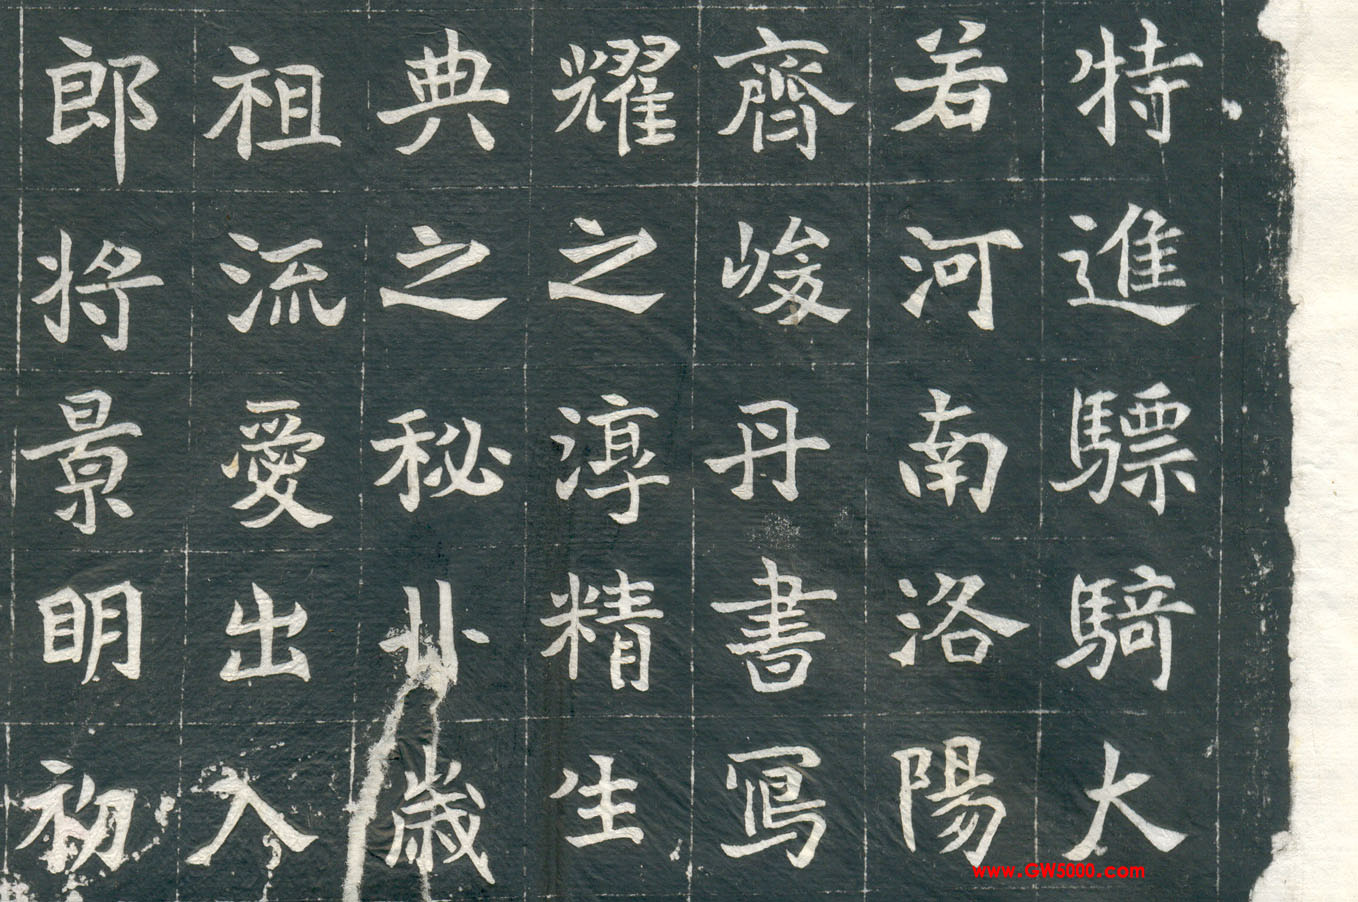 特進驃騎大
若河南洛陽
齊峻丹書寫
耀之淳精生
典之秘丱歲
祖流愛出入
郎將景明初
www.GW5000.com